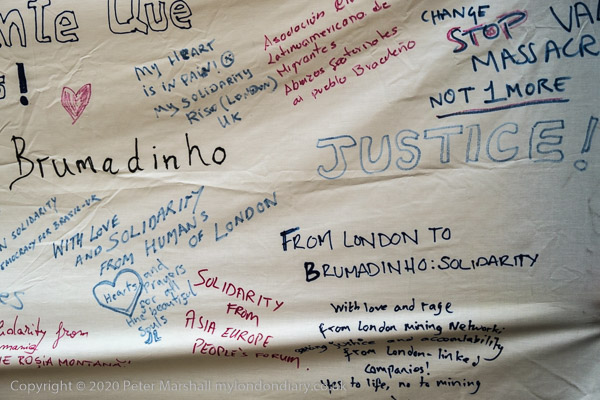 nte Que
!
MY HEART
IS IN PAIN!
MY SOLIDARITY
RISE (LONDON)
UK
Latinoamericano de
Migrantes
Abrazos Fraternales
al pueblo Brasileño
CHANGE
STOP VA
MASSACR
NOT 1 MORE
JUSTICE!
Brumadinho
SOLIDARITY
DEMOCRACY FOR BRASIL-UK
WITH LOVE
AND SOLIDARITY
FROM HUMANS
OF LONDON
Hearts and
prayers
for all
the beautiful
souls
SOLIDARITY
FROM
ASIA EUROPE
PEOPLE'S FORUM
lidarity from
ROSIA MONTANA
FROM LONDON TO
BRUMADINHO: SOLIDARITY
With love and rage
from London Mining Network:
justice and accountability
from London-linked
companies!
Yes to life, no to mining
Copyright © 2020 Peter Marshall.mylondondiary.co.uk